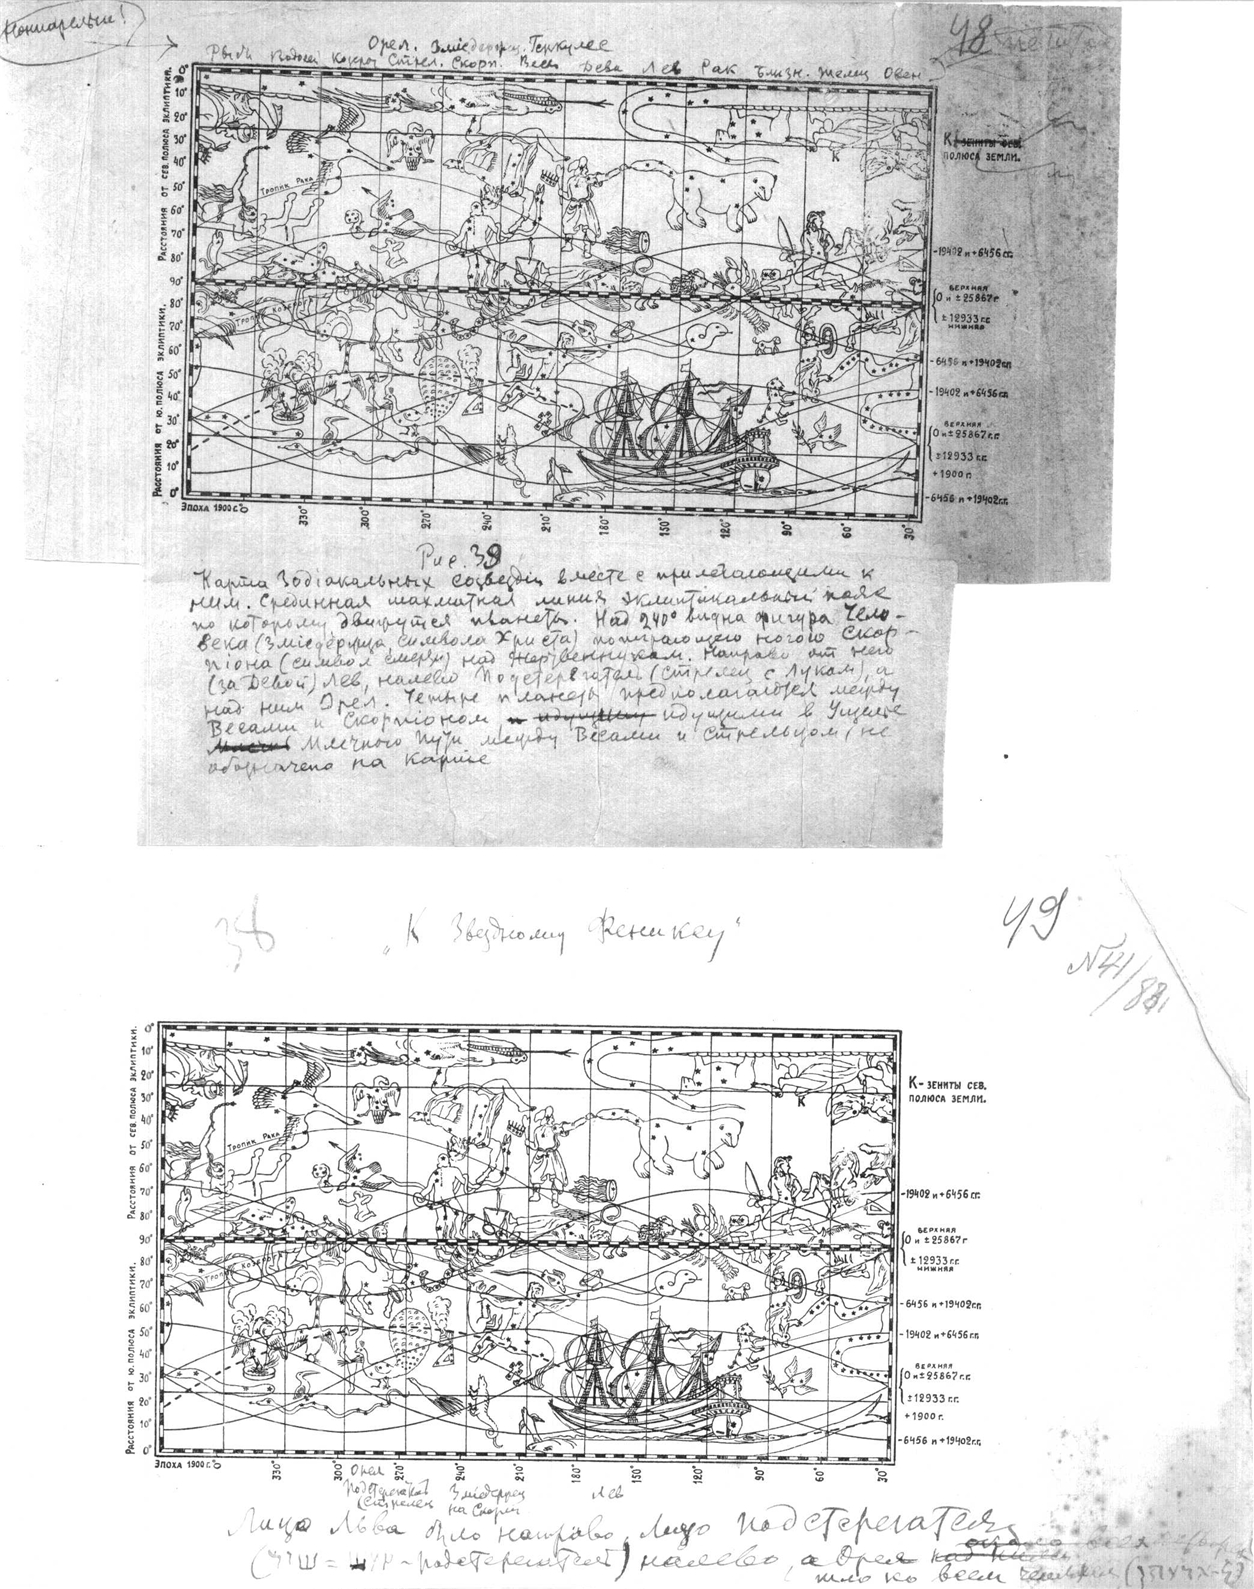 Понмарелли!
48
Орел. Зміедержец. Геркулес
Рыбы Водолей Козрог Стрел. Скорп. Весы Дева Лев Рак Близн. Телец Овен
Расстояния от сев. полюса эклиптики.
0°
10°
20°
30°
40°
50°
60°
70°
80°
90°
Расстояния от ю. полюса эклиптики.
80°
70°
60°
50°
40°
30°
20°
10°
0°
Тропик Рака
Тропик Козерога
К
К - зениты сев.
полюса земли.
-19402 и +6456 гг.
верхняя
0 и ±25867 г
±12933 г.г.
нижняя
-6456 и +19402 г.г.
-19402 и +6456 г.г.
верхняя
0 и ±25867 г.г.
±12933 г.г.
+1900 г.
-6456 и +19402 г.г.
Эпоха 1900 г. 0
330° 300° 270° 240° 210° 180° 150° 120° 90° 60° 30°
Рис. 38
Карта Зодіакальных созвездій вместе с прилегающими к
ним. Срединная шахматная линия эклиптикальный пояс
по которому движутся планеты. Над 240° видна фигура Чело-
века (Зміедержца, символа Христа) попирающего ногою Скор-
піона (символ смерти) над Жертвенником. Направо от него
(за Девой) Лев, налево Подстерегатель (Стрелец с Луком), а
над ним Орел. Четыре планеты предполагаются между
Весами и Скорпіоном, идущими в Ущелье
Млечного Пути между Весами и Стрельцом, не
обозначено на карте
38
„К Звездному Фениксу"
49
№41/88
Расстояния от сев. полюса эклиптики.
0°
10°
20°
30°
40°
50°
60°
70°
80°
90°
Расстояния от ю. полюса эклиптики.
80°
70°
60°
50°
40°
30°
20°
10°
0°
Тропик Рака
Тропик Козерога
К
К - зениты сев.
полюса земли.
-19402 и +6456 г.г.
верхняя
0 и ±25867 г
±12933 г.г.
нижняя
-6456 и +19402 г.г.
-19402 и +6456 г.г.
верхняя
0 и ±25867 г.г.
±12933 г.г.
+1900 г.
-6456 и +19402 г.г.
Эпоха 1900 г. 0
330° 300° 270° 240° 210° 180° 150° 120° 90° 60° 30°
Орел
Подстерегатель Зміедержец Лев
(Стрелец на Скорп.
Лицо Льва было направо, Лицо Подстерегателя
подстерегателей) налево, а Орел
шло ко всем